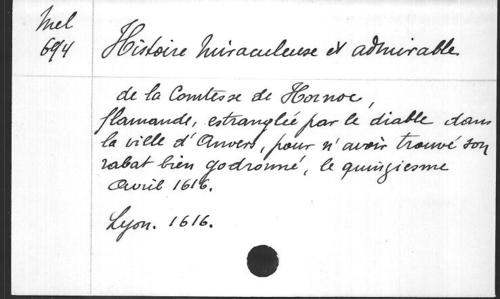 Mel
69/4
Histoire miraculeuse et admirable
de la Comtesse de Hornoc,
flamande, estranglée par le diable dans
la ville d'Anvers, pour n'avoir trouvé son
rabat bien godronné, le quinziesme
Avril 1616.
Lyon. 1616.